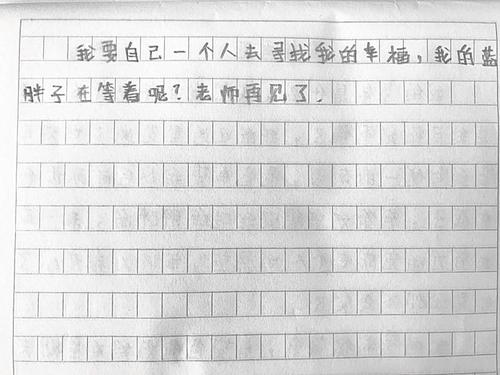 我要自己一个人去寻找我的幸福，我的蓝
胖子在等着呢？老师再见了．